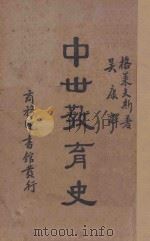 格萊夫斯著
吳康譯
中世教育史
商務印書館發行